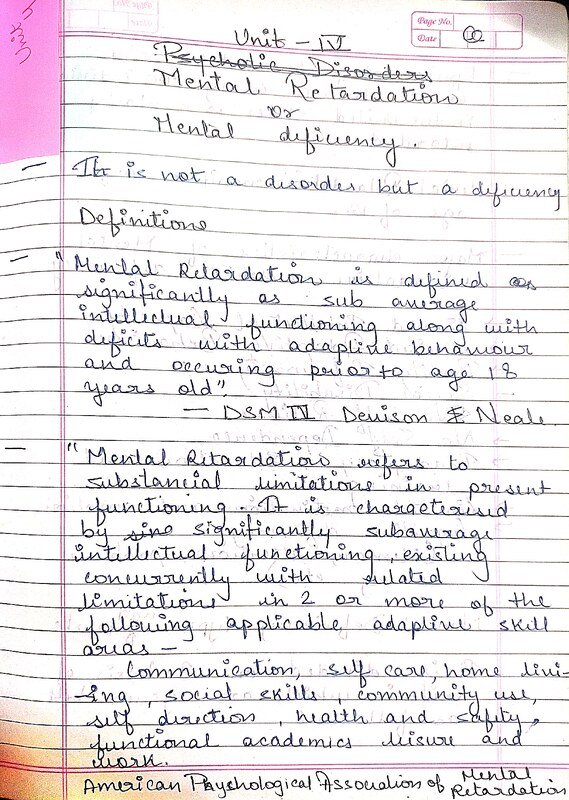 Unit
Page No.
Date
Unit - IV
Psychotic Disorders
Mental Retardation
Or
Mental deficiency.
- It is not a disorder but a deficiency
Definitions
- "Mental Retardation is defined as
significantly as sub average
intellectual functioning along with
deficits with adaptive behaviour
and occuring prior to age 18
years old".
- DSM IV Denison & Neale
- "Mental Retardation refers to
substancial limitations in present
functioning. It is charecterised
by sing significantly subaverage
intellectual functioning, existing
concurrently with related
limitations in 2 or more of the
following applicable adaptive skill
areas -
Communication, self care, home livi-
-ing, social skills, community use,
self direction, health and safety,
functional academics leisure and
work.
American Phychological Association of Mental
Retardation